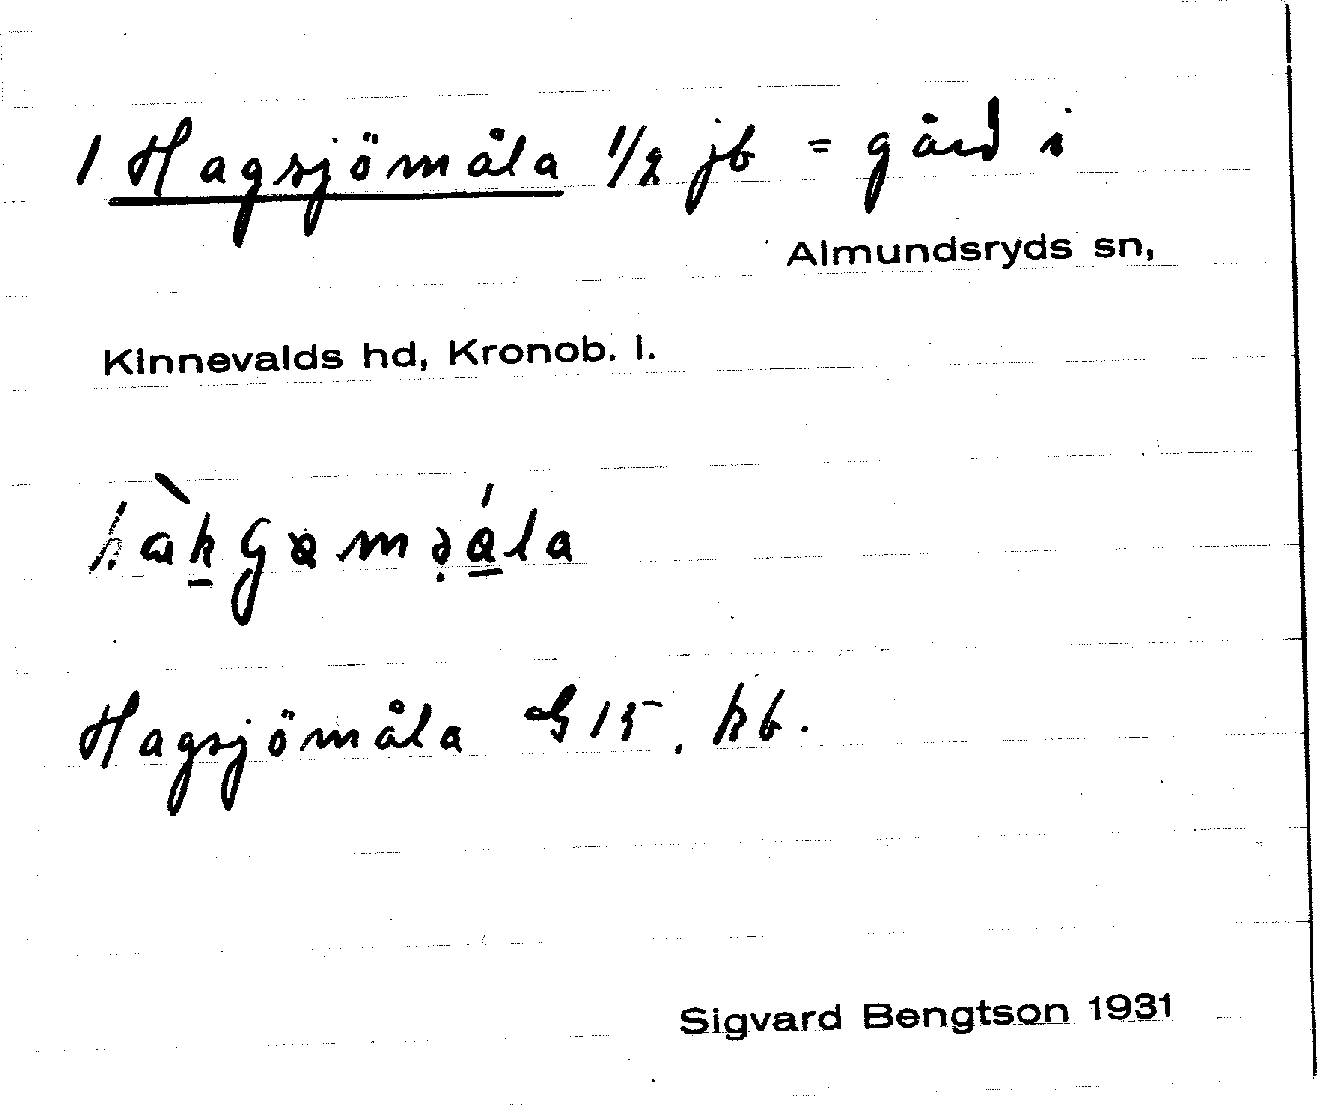 1 Hagsjömåla 1/2 jb = gård i
Almundsryds sn,
Kinnevalds hd, Kronob. l.
Hagsjömåla G 15. kb.
Sigvard Bengtson 1931